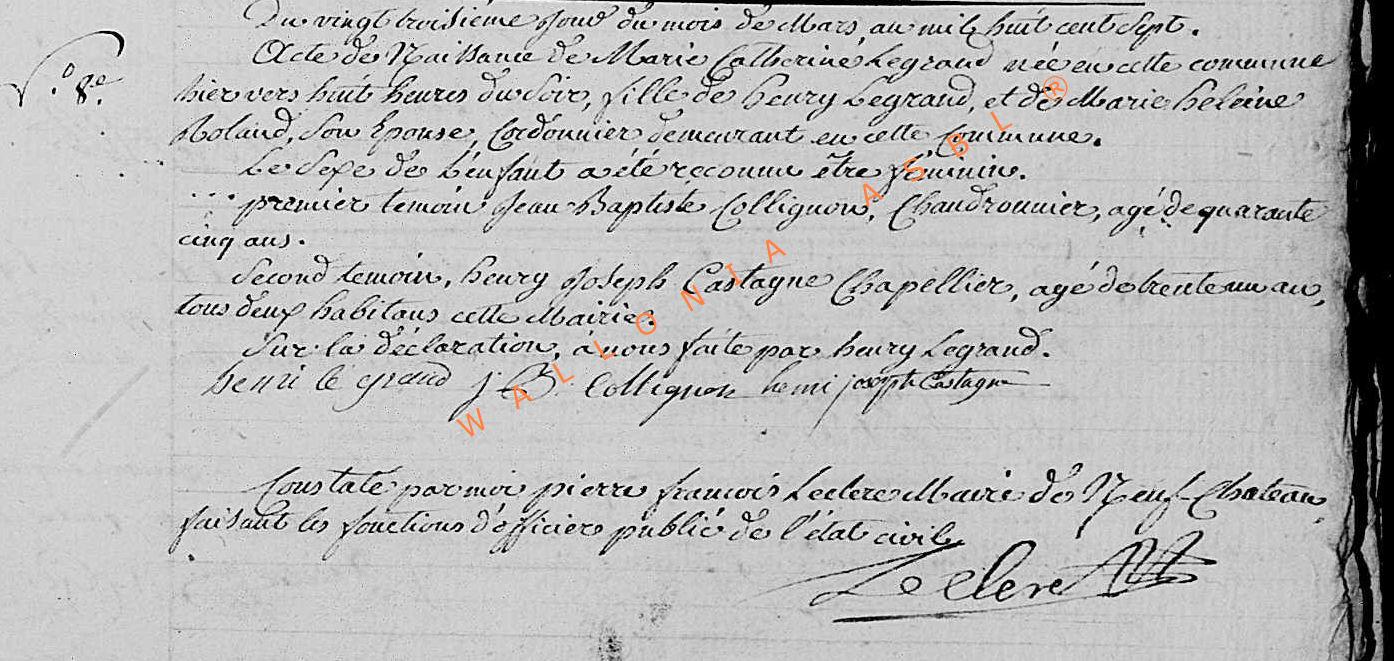 Du vingt troisième jour du mois de Mars, an mil huit cent Sept.
Acte de Naissance de Marie Catherine Legrand née en cette commune
N.o 8.e
hier vers huit heures du Soir, fille de henry Legrand, et de Marie heleine
Roland, Son Epouse, Cordonnier demeurant en cette Commune.
Le Sexe de L'enfant a été reconnu être féminin.
premier temoin Jean Baptiste Collignon, Chaudronnier, agé de quarante
cinq ans.
Second temoin, henry Joseph Castagne Chapellier, agé de trente un an,
tous deux habitans cette Mairie.
Sur la déclaration, à nous faite par henry Legrand.
henri le grand J B Collignon henri joseph Castagne
Constaté par moi pierre francois Leclerc Maire de Neuf-Chateau,
faisant les fonctions d'officier public de l'état civil
Leclerc
WALLONIA ASBL ®